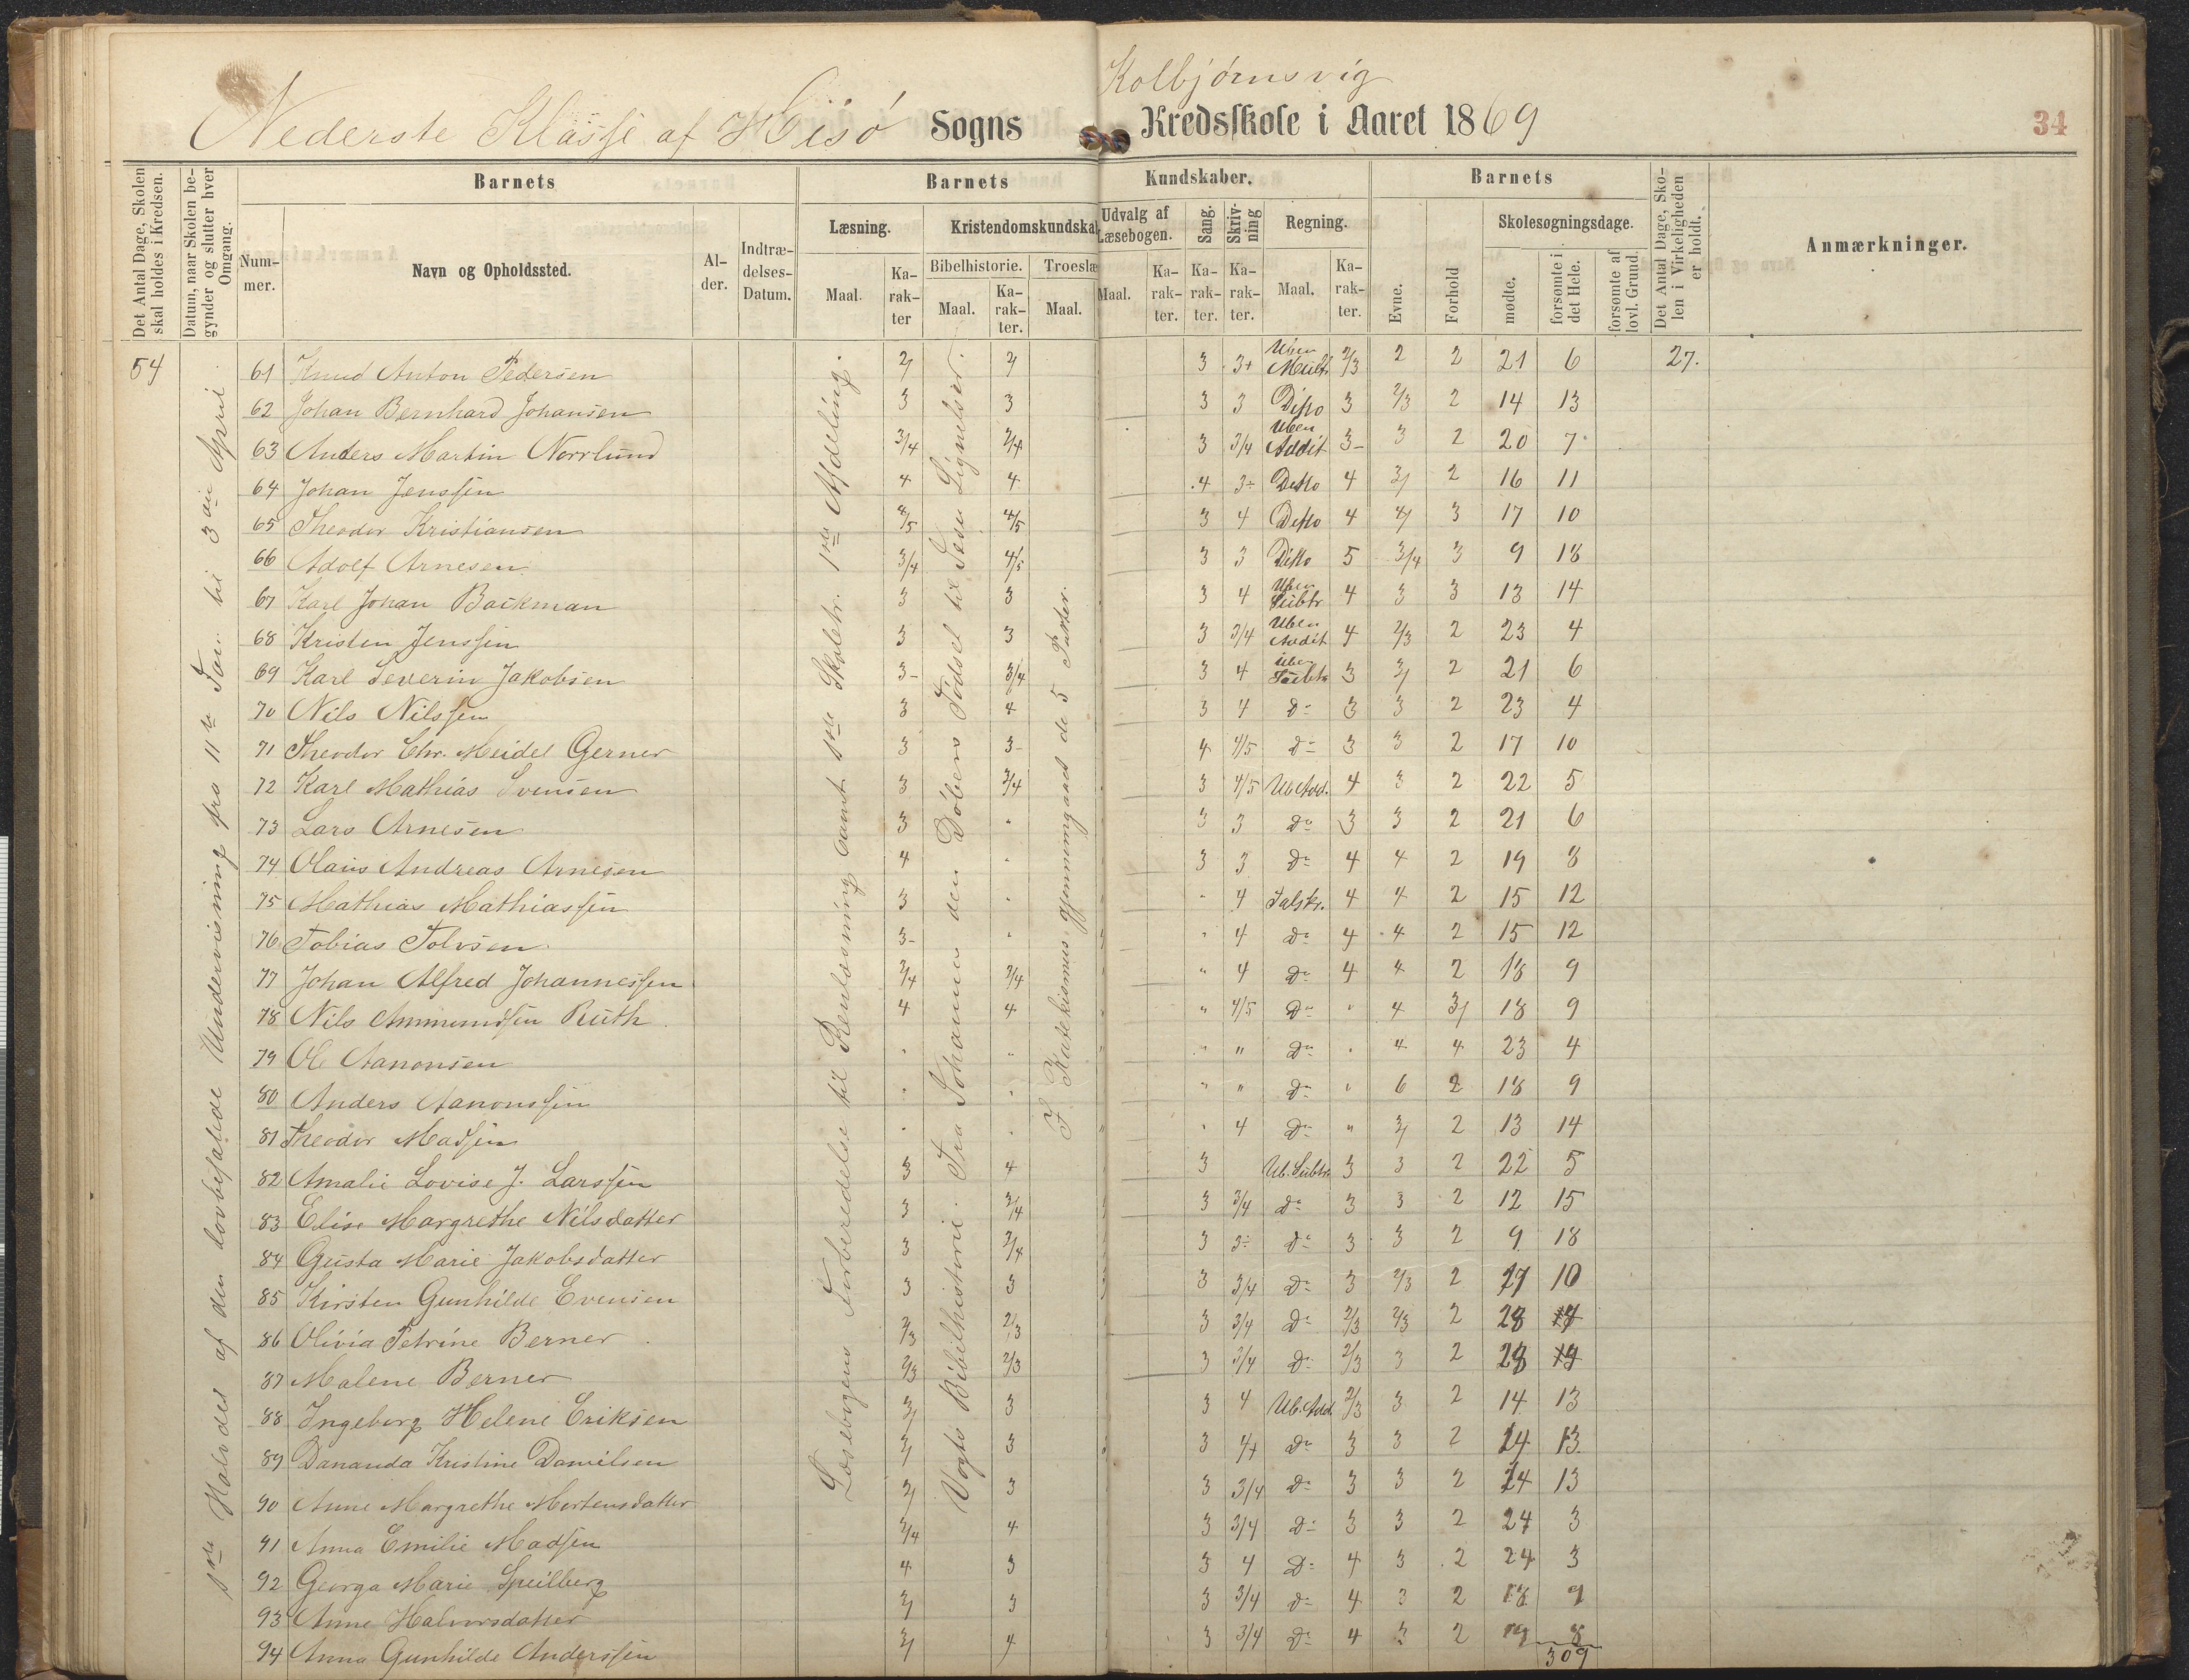 Kolbjørnsvig
Nederste Klasse af Hisø Sogns Kredsskole i Aaret 1869
34
Det Antal Dage, Skolen skal holdes i Kredsen.
Datum, naar Skolen begynder og slutter hver Omgang.
Barnets
Barnets
Kundskaber.
Barnets
Det Antal Dage, Skolen i Virkeligheden er holdt.
Anmærkninger.
Nummer.
Navn og Opholdssted.
Alder.
Indtrædelses-Datum.
Læsning.
Kristendomskundskab
Udvalg af Læsebogen.
Sang.
Skrivning
Regning.
Evne.
Forhold
Skolesøgningsdage.
Maal.
Karakter
Bibelhistorie.
Troeslæ
Maal.
Karakter.
Maal.
Maal.
Karakter.
Karakter.
Karakter.
Maal.
Karakter.
mødte.
forsømte i det Hele.
forsømte af lovl. Grund.
54
1ste Halvdel af den lovbefalede Undervisning fra 11te Jan. til 3die April.
Læsebogens Forberedelse til Renlæsning samt 1ste Skoletr. 1ste Afdeling.
Vogts Bibelhistorie. Fra Johannes den Døbers Fødsel til Jesu Lignelser.
I Katekismus gjennemgaaet de 5 Parter.
61 Knud Anton Pedersen 3 3+ Uben Mult. 2/3 2 2 21 6 27.
62 Johan Bernhard Johansen 3 3 3 3 Ditto 3 2/3 2 14 13
63 Anders Martin Norrlund 3/4 3/4 3 3/4 Uben Addit 3- 3 2 20 7
64 Johan Jenssen 4 4 4 3÷ Ditto 4 3/ 2 16 11
65 Theodor Kristiansen 4/5 4/5 3 4 Ditto 4 4/ 3 17 10
66 Adolf Arnesen 3/4 4/5 3 3 Ditto 5 3/4 3 9 18
67 Karl Johan Backman 3 3 3 4 Uben Subtr 4 3 3 13 14
68 Kristen Jenssen 3 3 3 3/4 Uben Addit 4 2/3 2 23 4
69 Karl Severin Jakobsen 3- 3/4 3 4 Uben Subtr 3 3/ 2 21 6
70 Nils Nilssen 3 4 3 4 do 3 3 2 23 4
71 Theodor Chr. Meidel Gerner 3 3- 4 4/5 do 3 3 2 17 10
72 Karl Mathias Svensen 3 3/4 3 4/5 Ub Add. 4 3 2 22 5
73 Lars Arnesen 3 " 3 3 do 3 3 2 21 6
74 Olaus Andreas Arnesen 4 " 3 3 do 4 4 2 19 8
75 Mathias Mathiassen 3 " " 4 Talskr. 4 4 2 15 12
76 Tobias Tolvsen 3- " " 4 do 4 4 2 15 12
77 Johan Alfred Johannessen 3/4 3/4 " 4 do 4 4 2 18 9
78 Nils Ammundsen Ruth 4 4 " 4/5 do " 4 3/ 18 9
79 Ole Aanonsen " " " " do " 4 4 23 4
80 Anders Aanonssen " " " " do " 6 2 18 9
81 Theodor Madsen " " " 4 do " 3/ 2 13 14
82 Amalie Lovise J. Larssen 3 4 3 Ub. Subtr. 3 3 2 22 5
83 Elise Margrethe Nilsdatter 3 3/4 3 3/4 do 3 3 2 12 15
84 Gusta Marie Jakobsdatter 3 3/4 3 3÷ do 3 3 2 9 18
85 Kirsten Gunhilde Evensen 3 3 3 3/4 do 3 2/3 2 17 10
86 Olivia Petrine Berner 2/3 2/3 3 3/4 do 2/3 2/3 2
87 Malene Berner 2/3 2/3 3 3/4 do 2/3 3 2
88 Ingeborg Helene Eriksen 3/ 3 3 4 Ub. Add. 2/3 3 2 14 13
89 Dananda Kristine Danielsen 3/ 3 3 4+ do 3 3 2 14 13
90 Anne Margrethe Mortensdatter 3/ 3 3 3/4 do 3 3 2 14 13
91 Anna Emilie Madsen 3/4 4 3 3/4 do 3 3 2 24 3
92 Georga Marie Speilberg 4 3 3 4 do 4 3 2 24 3
93 Anne Halvorsdatter 3/ 3 3 3/4 do 4 3 2 18 9
94 Anna Gunhilde Anderssen 3/ 4 3 3/4 do 4 3 2 19 8
309